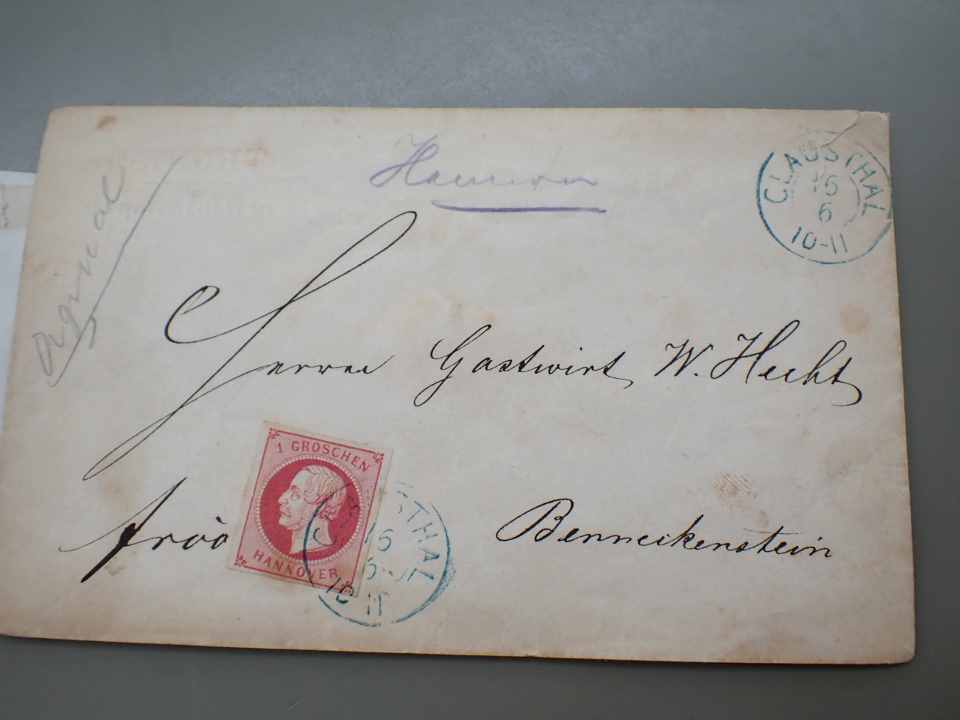 Orginal
Hannover
CLAUSTHAL
15
6
10-11
Herrn Gastwirt W. Hecht
1 GROSCHEN
HANNOVER
CLAUSTHAL
15
6
10-11
Benneckenstein